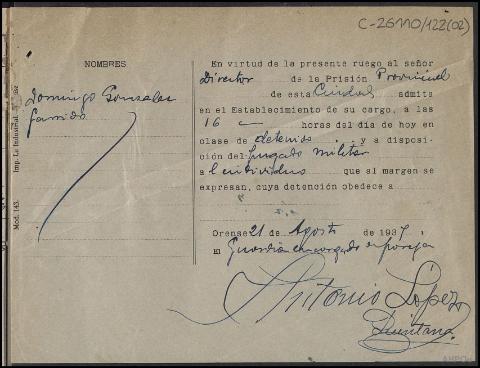 C-26110/122(02)
NOMBRES
Domingo Gonzalez
Garrido
Imp. La Industrial.
Mod. 143.
En virtud de la presente ruego al señor
Director de la Prisión Provincial
de esta Ciudad admita
en el Establecimiento de su cargo, a las
16 horas del día de hoy en
clase de detenido y a disposi-
ción del Juzgado Militar
a l individuo que al margen se
expresan, cuya detención obedece a
Orense 21 de Agosto de 1937.
El Guardia encargado
Antonio López
Quintana